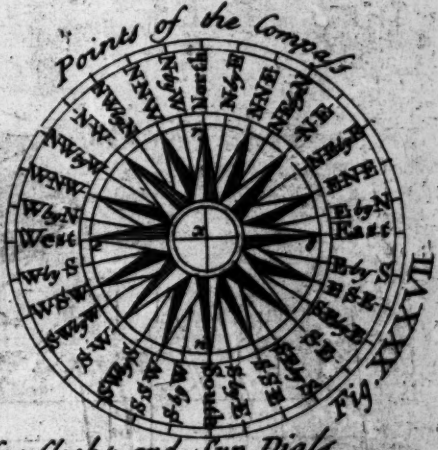 Points of the Compass
North
N by E
NNE
NE by N
N E
NE by E
ENE
E by N
East
E by S
E S E
SE by E
S E
SE by S
S S E
S by E
South
S by W
S S W
SW by S
S W
SW by W
W S W
W by S
West
W by N
WNW
NW by W
NW
NW by N
NNW
N by W
Fig. XXXVII
and Sun Dials